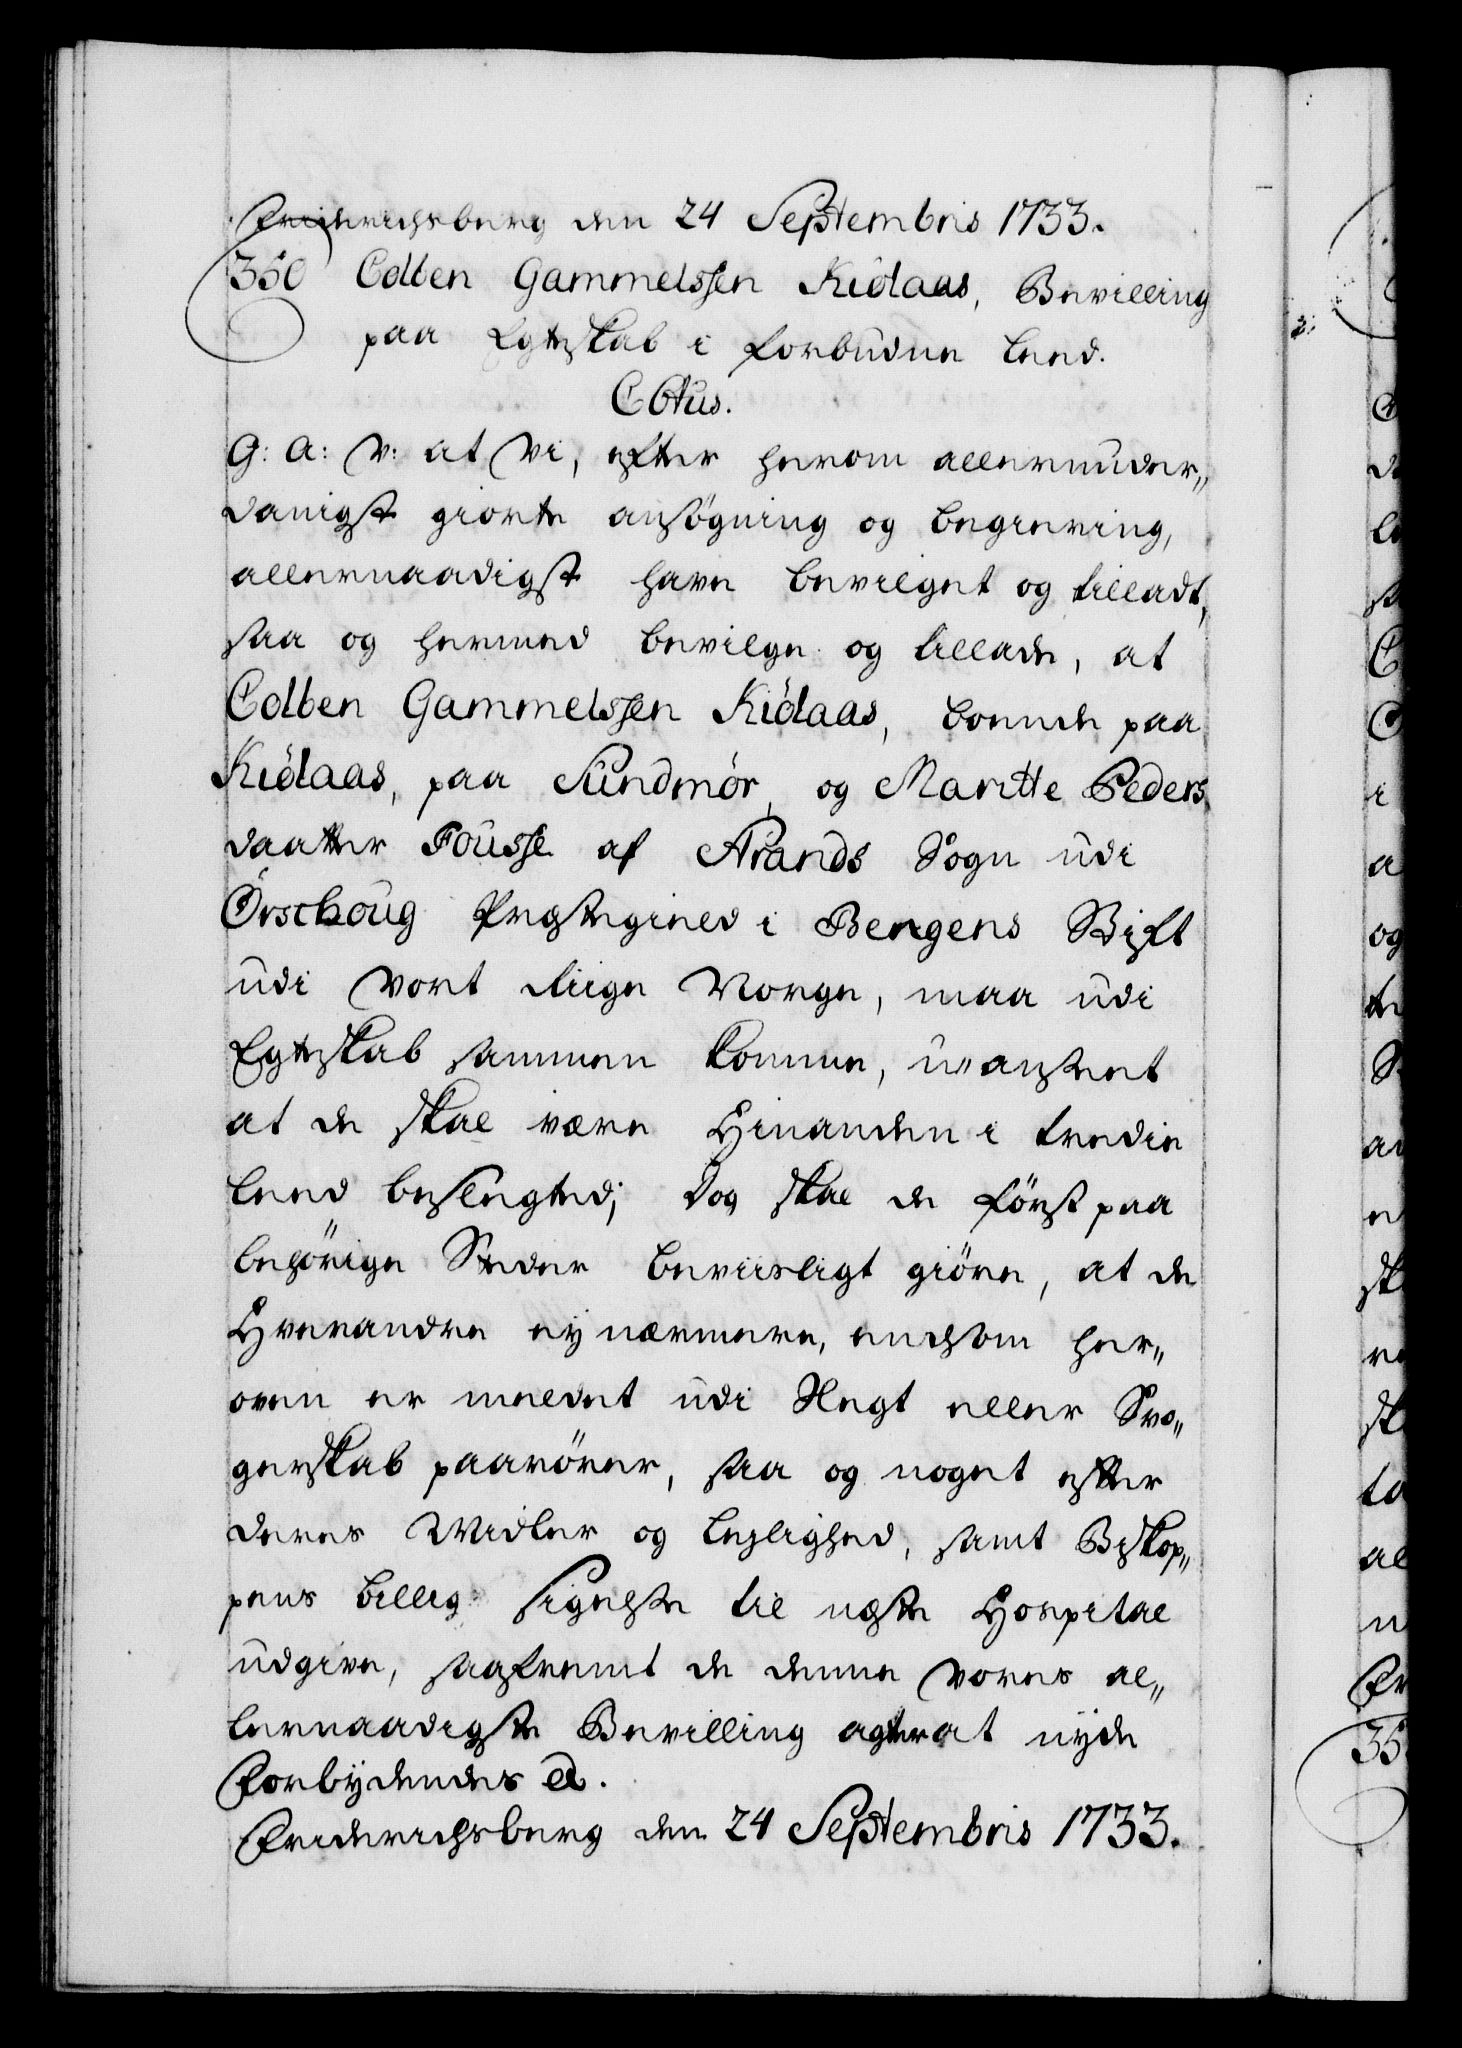 Friderichsberg den 24 Septembris 1733.
350 Colben Gammelssen Kiölaas, Bevilling
paa Egteskab i forbudne Leed.
C6tus.
G: A: V: at Vi, efter herom allerunder„
danigst giorte ansögning og begiering,
allernaadigst have bevilget og tilladt,
saa og hermed bevilge og tillade, at
Colben Gammelssen Kiölaas, boende paa
Kiölaas, paa Sundmör, og Maritte Peders
daatter Fousse af Strands Sogn udi
Örschoug Præstegield i Bergens Stift
udi vort Riige Norge, maa udi
Egteskab sammen komme, uanseet
at de skal være Hinanden i tredie
Leed beslegted; Dog skal de först paa
behörige Steder beviisligt giöre, at de
Hverandre ey nærmere, end som her„
oven er meldet udi Slegt eller Svo„
gerskab paarörer, saa og noget efter
deres Midler og Leylighed, samt Biskop„
pens billig sigelse til næste Hospital
udgive, saafremt de denne vores al„
lernaadigste Bevilling agter at nyde
Forbydendes &.
Friderichsberg den 24 Septembris 1733.